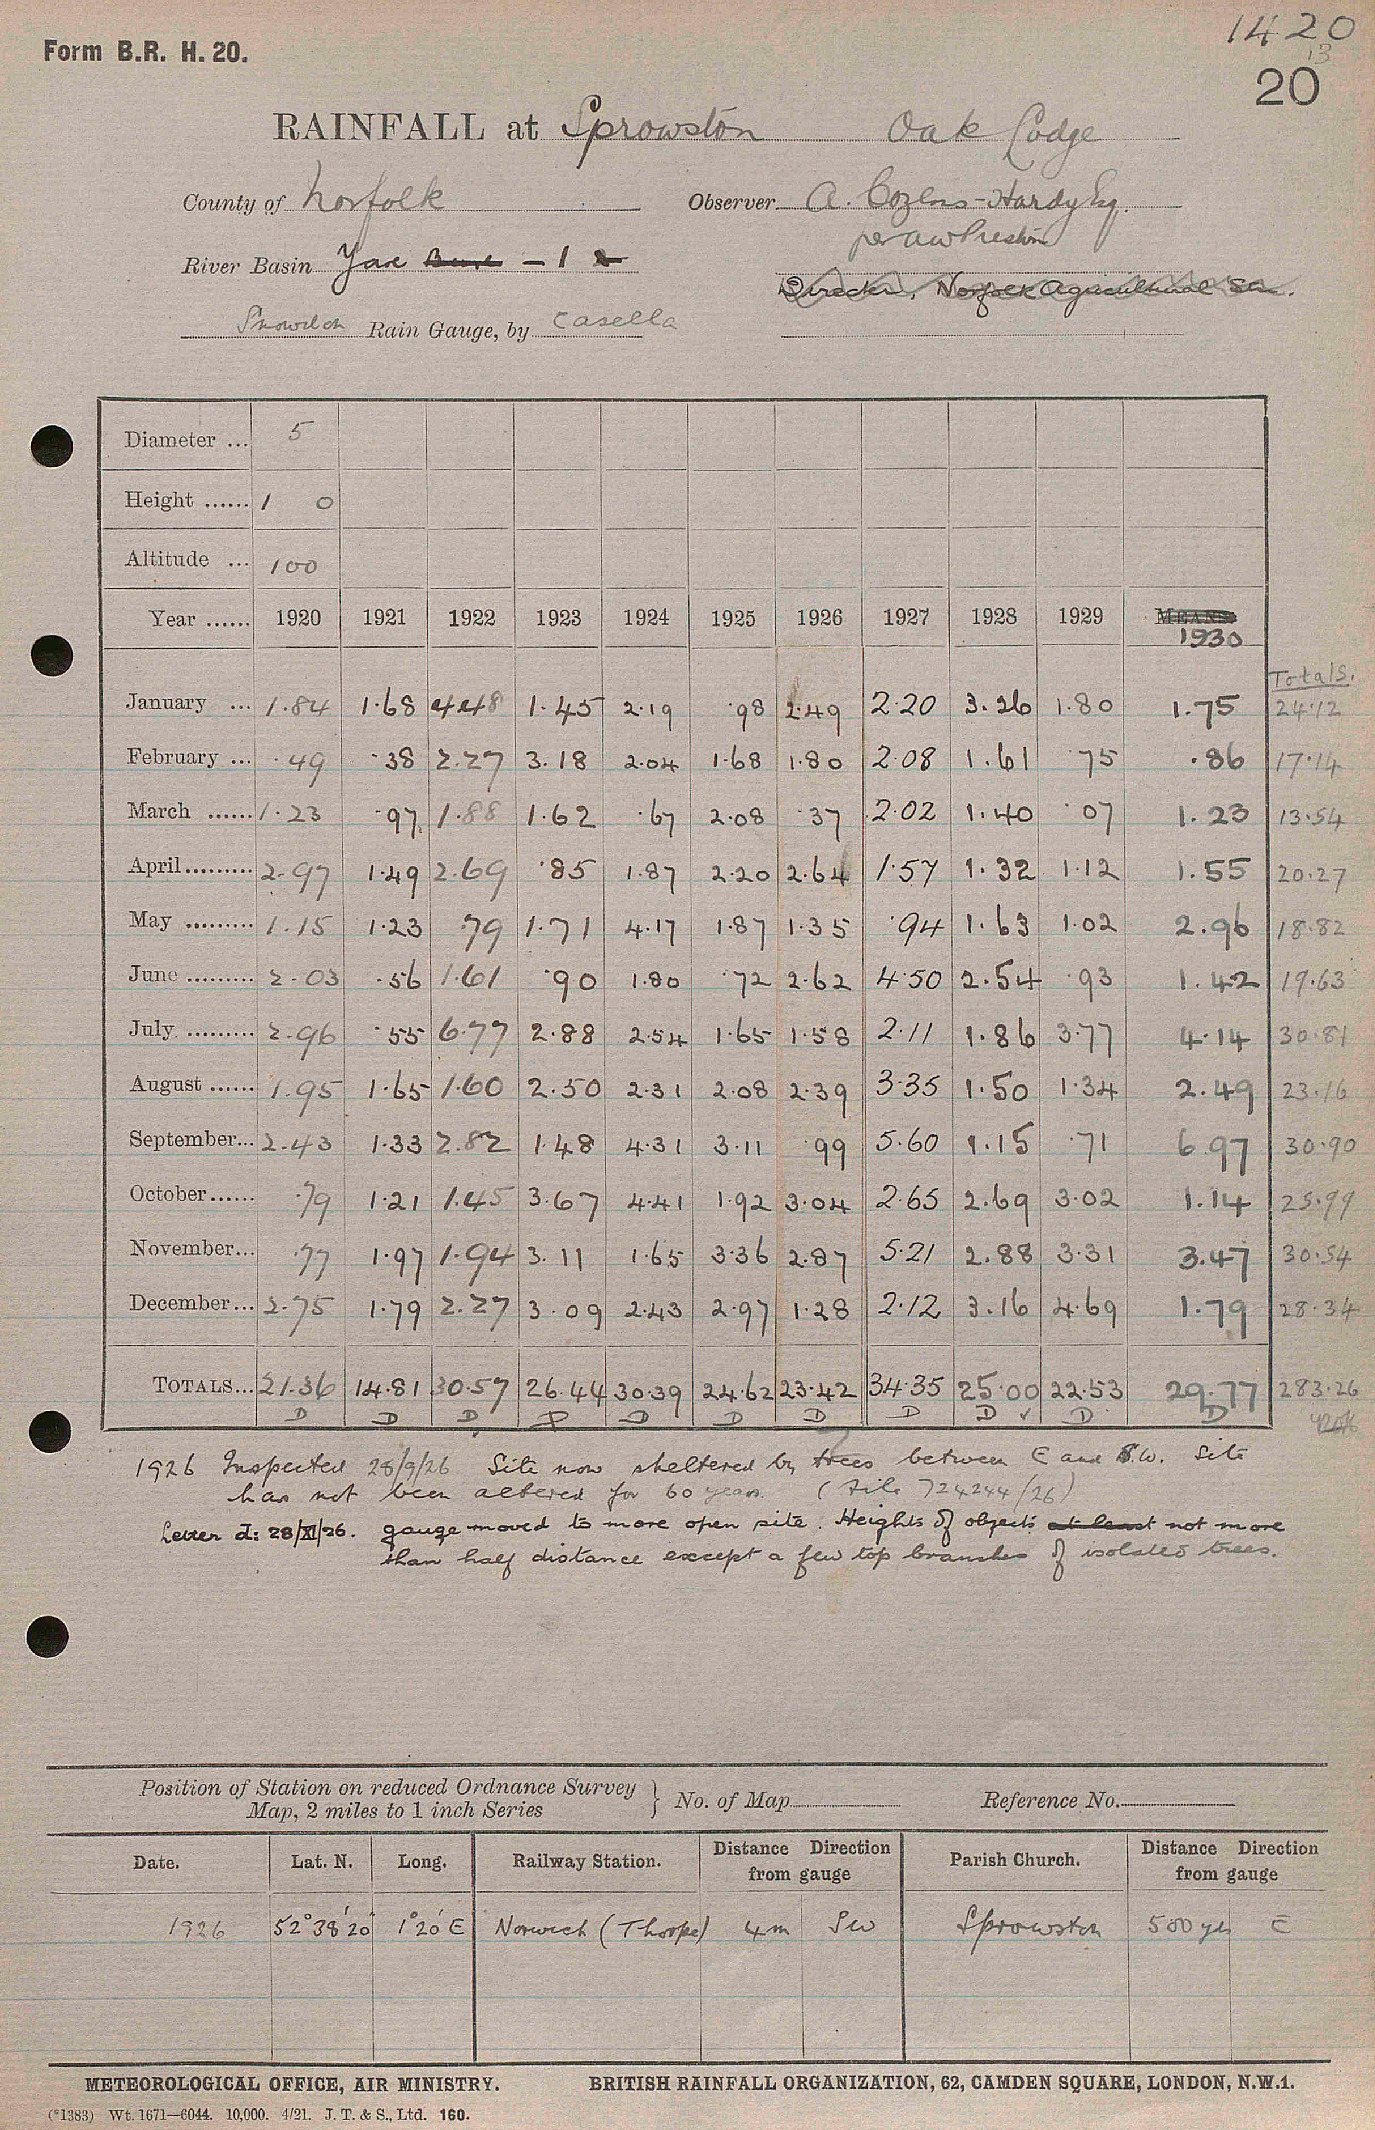 1420
13
Form B.R. H. 20.
20
RAINFALL at Sprowston Oak Lodge
County of Norfolk Observer A. Cozens-Hardy Esq.
per A W Preston
River Basin Yare Bure - 1
Director, Norfolk Agricultural Stn.
Snowdon Rain Gauge, by Casella
Diameter ... 5
Height ...... 1 0
Altitude ... 100
Year ...... 1920 1921 1922 1923 1924 1925 1926 1927 1928 1929 MEANS.
1930
Totals.
January ... 1.84 1.68 4.48 1.45 2.19 .98 2.49 2.20 3.26 1.80 1.75 24.12
February ... .49 .38 2.27 3.18 2.04 1.68 1.80 2.08 1.61 .75 .86 17.14
March ...... 1.23 .97 1.88 1.62 .67 2.08 .37 2.02 1.40 .07 1.23 13.54
April ......... 2.97 1.49 2.69 .85 1.87 2.20 2.64 1.57 1.32 1.12 1.55 20.27
May ......... 1.15 1.23 .79 1.71 4.17 1.87 1.35 .94 1.63 1.02 2.96 18.82
June ......... 2.03 .56 1.61 .90 1.80 .72 2.62 4.50 2.54 .93 1.42 19.63
July ......... 2.96 .55 6.77 2.88 2.54 1.65 1.58 2.11 1.86 3.77 4.14 30.81
August ...... 1.95 1.65 1.60 2.50 2.31 2.08 2.39 3.35 1.50 1.34 2.49 23.16
September... 2.43 1.33 2.82 1.48 4.31 3.11 .99 5.60 1.15 .71 6.97 30.90
October...... .79 1.21 1.45 3.67 4.41 1.92 3.04 2.65 2.69 3.02 1.14 25.99
November... .77 1.97 1.94 3.11 1.65 3.36 2.87 5.21 2.88 3.31 3.47 30.54
December... 2.75 1.79 2.27 3.09 2.43 2.97 1.28 2.12 3.16 4.69 1.79 28.34
TOTALS... 21.36 14.81 30.57 26.44 30.39 24.62 23.42 34.35 25.00 22.53 29.77 283.26
D D D D D D D D D ✓ D D
1926 Inspected 28/9/26 Site now sheltered by trees between E and S.W. Site
has not been altered for 60 years. (File 724244/26)
Letter d: 28/XI/26. gauge moved to more open site. Heights of objects at least not more
than half distance except a few top branches of isolated trees.
Position of Station on reduced Ordnance Survey
Map, 2 miles to 1 inch Series } No. of Map Reference No.
Date. Lat. N. Long. Railway Station. Distance Direction from gauge Parish Church. Distance Direction from gauge
1926 52° 38' 20" 1° 20' E Norwich (Thorpe) 4m SW Sprowston 500 yds E
METEOROLOGICAL OFFICE, AIR MINISTRY. BRITISH RAINFALL ORGANIZATION, 62, CAMDEN SQUARE, LONDON, N.W.1.
(*1383) Wt. 1671—6044. 10,000. 4/21. J. T. & S., Ltd. 160.